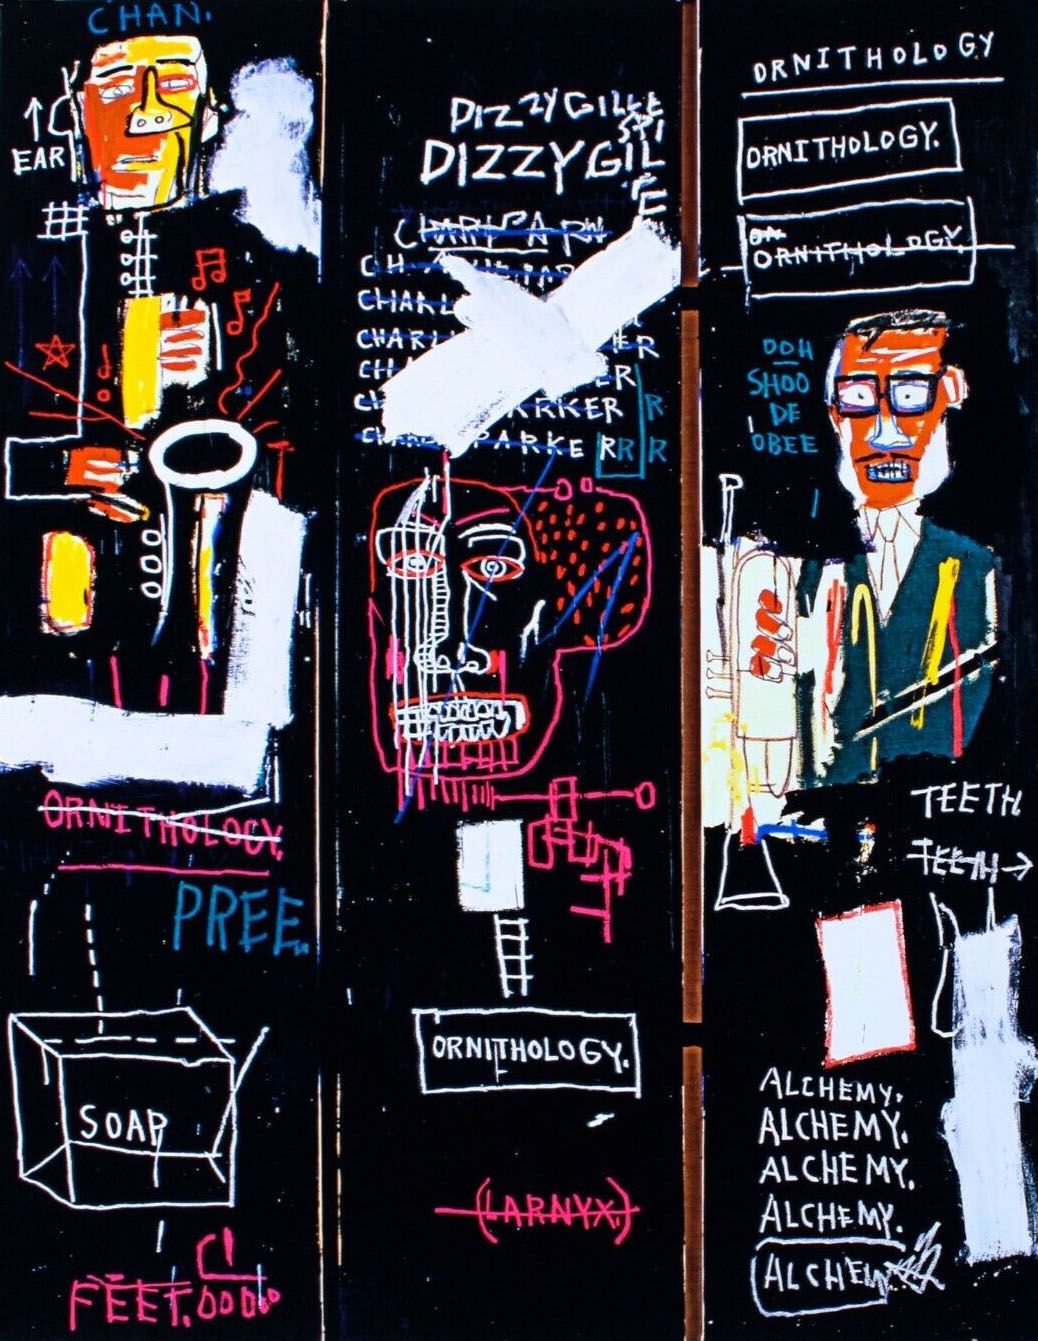 CHAN.
EAR
ORNITHOLOGY.
PREE.
SOAP
FEET.
DIZZYGILLE
SPI
DIZZYGIL
E
CHARL
CHARL
PARKER
CHARL PARKER
R
R
R
ORNITHOLOGY.
(LARNYX.)
ORNITHOLOGY
ORNITHOLOGY.
ORNITHOLOGY.
OOH
SHOO
DE
OBEE
TEETH.
TEETH→
ALCHEMY.
ALCHEMY.
ALCHEMY.
ALCHEMY.
ALCHEMY